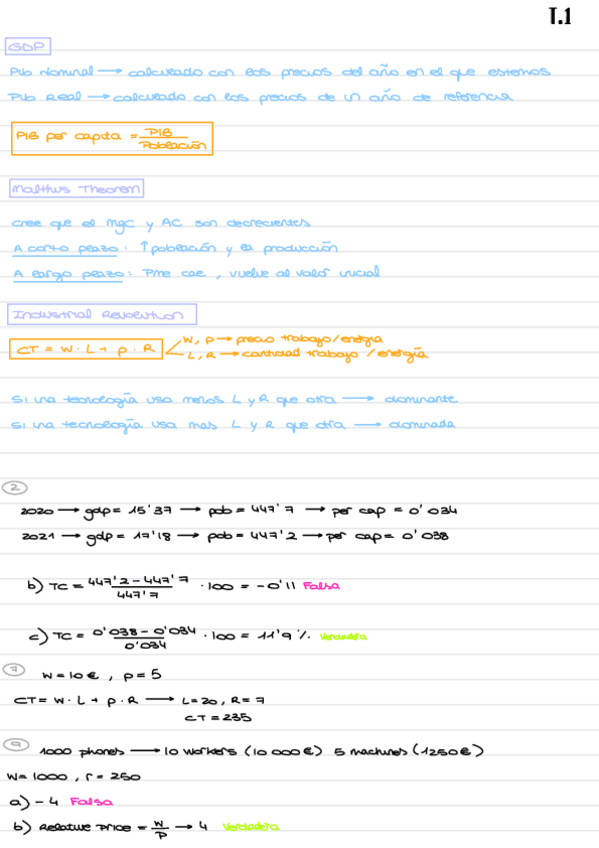 T.1
GDP
PIB Nominal → calculado con los precios del año en el que estemos
PIB Real → calculado con los precios de un año de referencia
PIB per capita = PIB / Población
Malthus Theorem
cree que el MgC y AC son decrecientes
A corto plazo: ↑ población y la producción
A largo plazo: PMe cae, vuelve al valor inicial
Industrial Revolution
CT = W · L + P · R
W, P → precio trabajo/energía
L, R → cantidad trabajo/energía
Si una tecnología usa menos L y R que otra → dominante
Si una tecnología usa mas L y R que otra → dominada
2
2020 → gdp = 15'37 → pob = 447'7 → per cap = 0'034
2021 → gdp = 17'18 → pob = 447'2 → per cap = 0'038
b) TC = 447'2 - 447'7 / 447'7 · 100 = -0'11 Falsa
c) TC = 0'038 - 0'034 / 0'034 · 100 = 11'9 % Verdadera
7
W = 10€, p = 5
CT = W · L + p · R → L = 20, R = 7
CT = 235
9
1000 phones → 10 workers (10 000€) 5 machines (1250€)
W = 1000, r = 250
a) -4 Falsa
b) Relative Price = W / P → 4 Verdadera